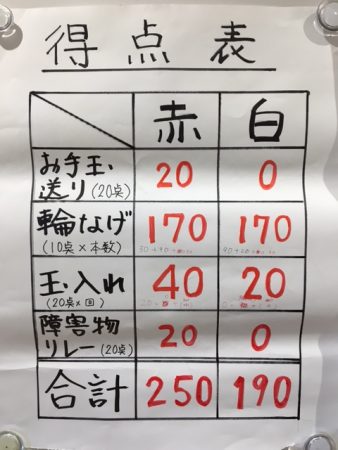 得点表
赤 白
お手玉 20 0
送り(20点)
輪なげ 170 170
(10点×本数)
玉入れ 40 20
(20点×回)
障害物 20 0
リレー(20点)
合計 250 190